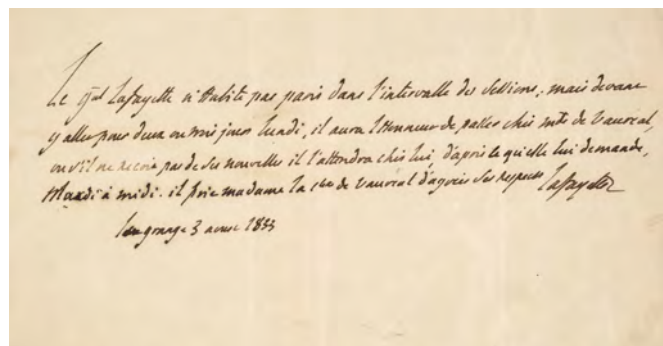 Le gal Lafayette n'habite pas paris dans l'intervalle des sessions; mais devant
y aller pour deux ou trois jours lundi, il aura l'honneur de passer chés mde de Vauréal,
ou s'il ne reçoit pas de ses nouvelles il l'attendra chés lui, d'après ce qu'elle lui demande,
Mardi à midi. il prie madame la ctesse de vauréal d'agréer ses respects Lafayette
Lagrange 3 aoust 1833